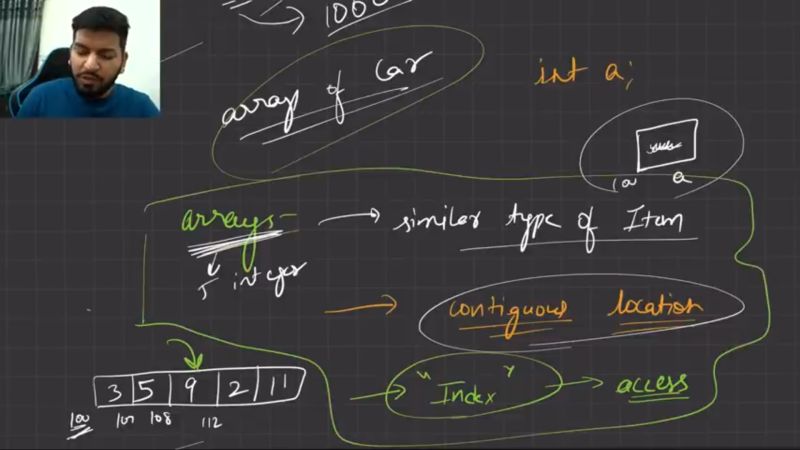 1000
array of Car
int a;
100 a
arrays- → similar type of Item
5 integer
→ contiguous location
→ "Index" → access
3 5 9 2 11
100 104 108 112